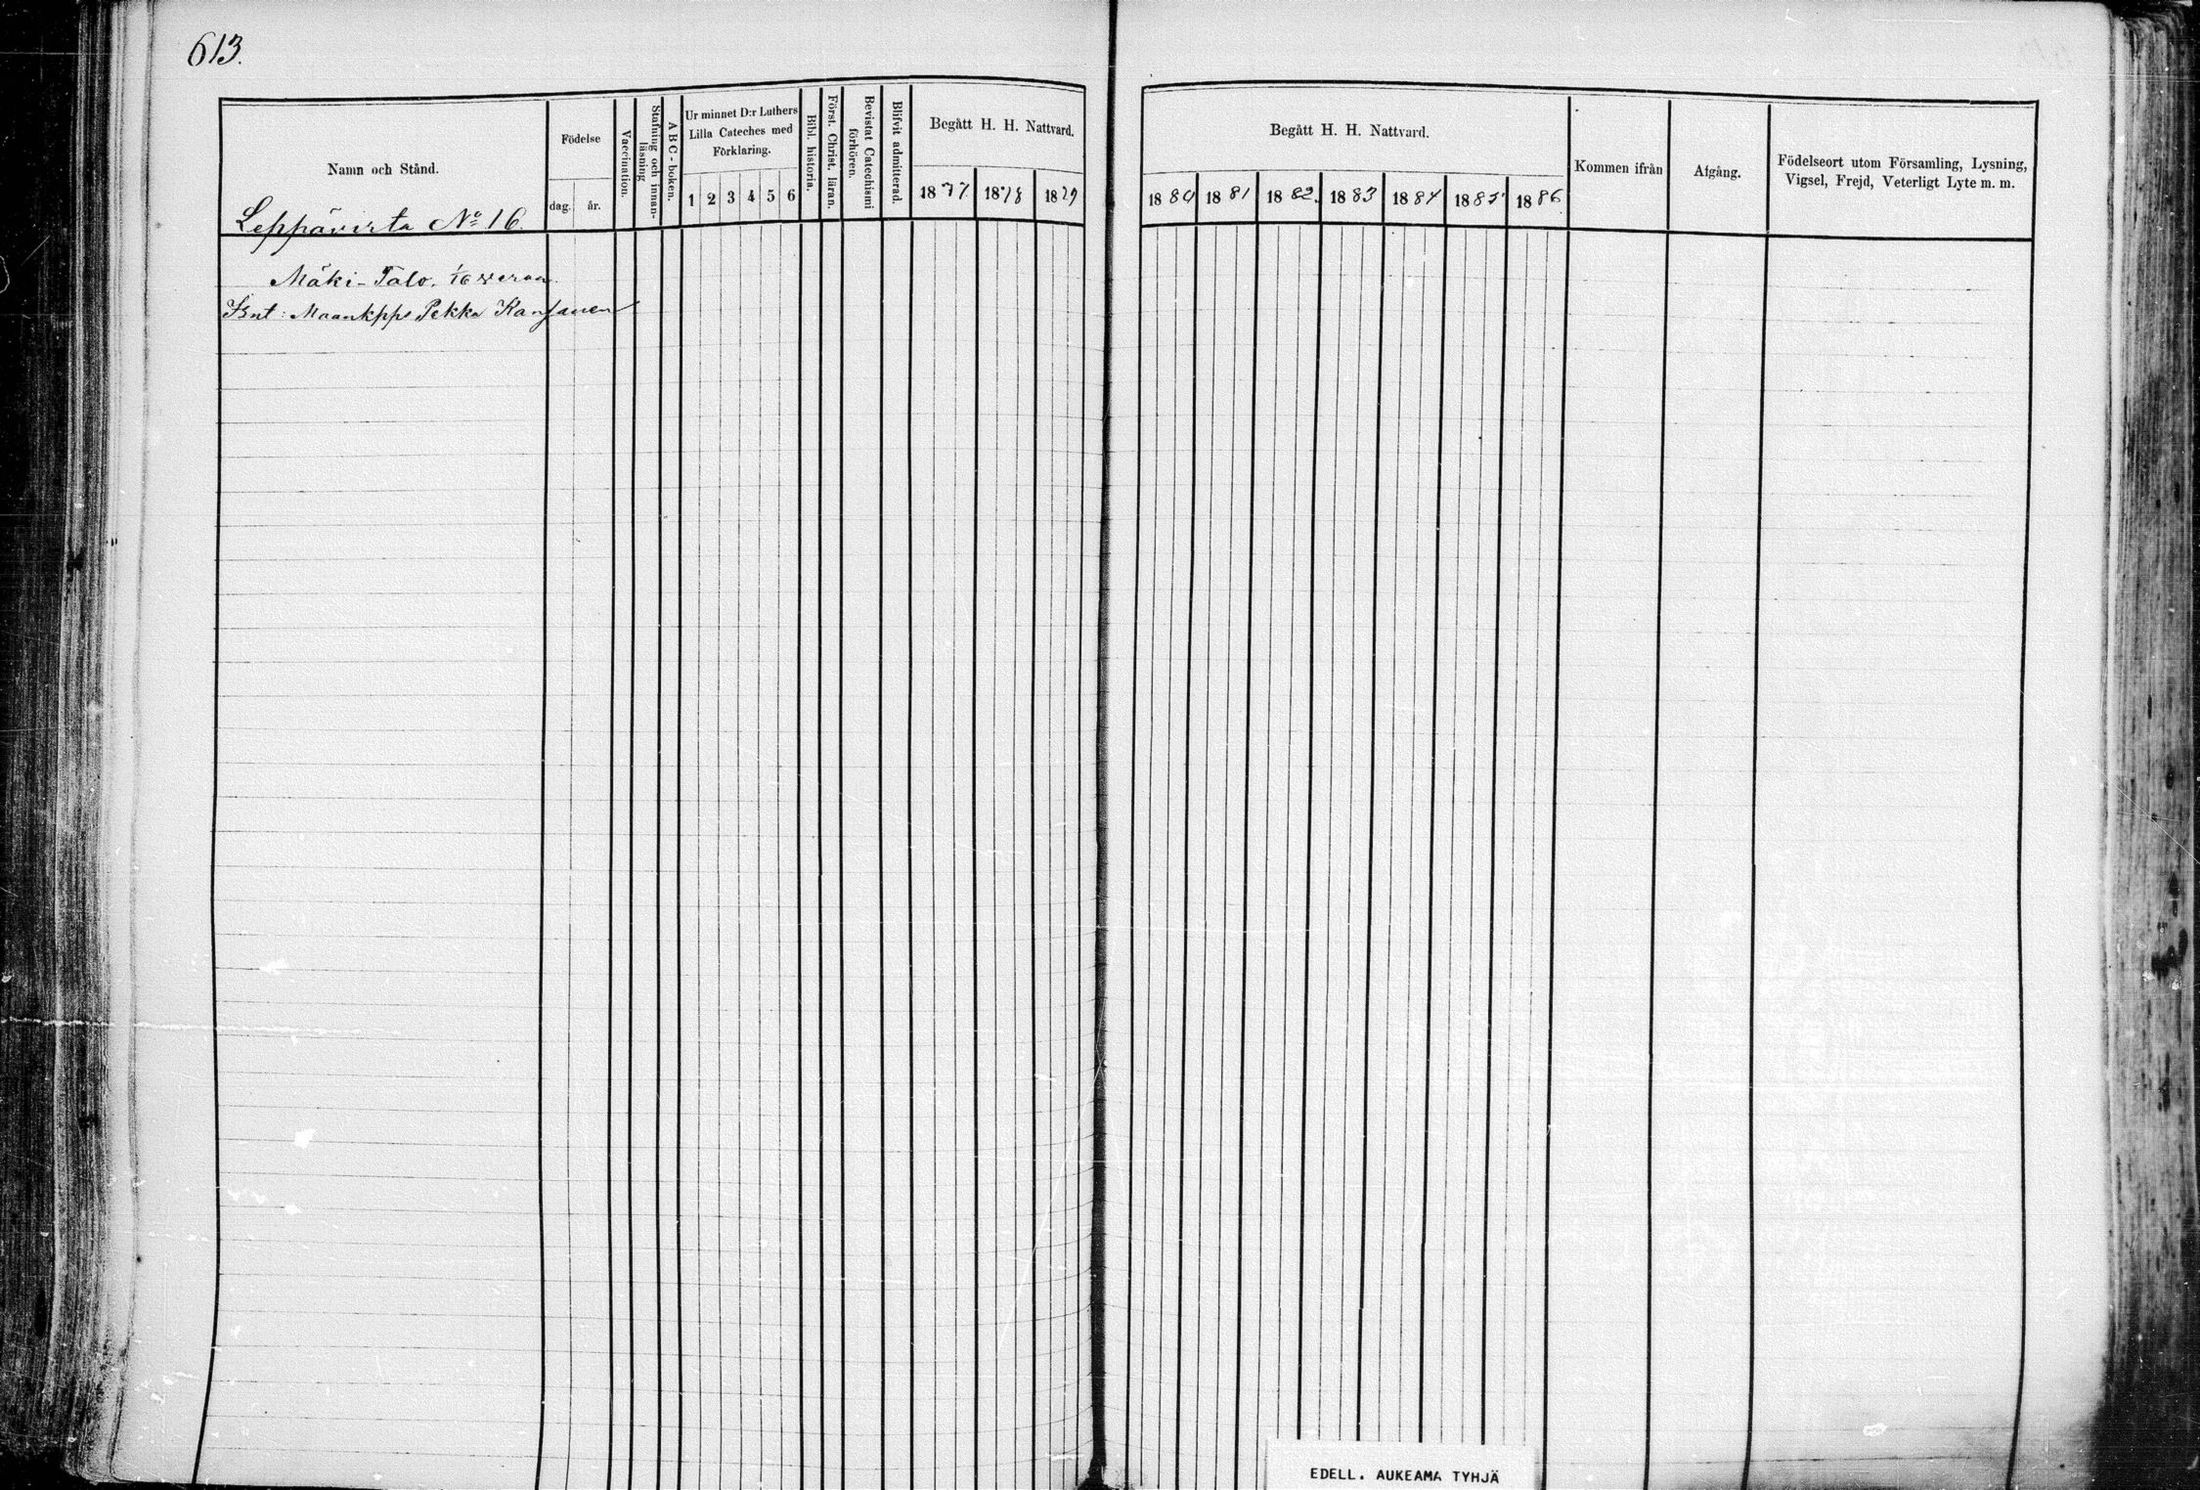 613.
Namn och Stånd.
Leppävirta No 16.
Födelse
dag.
år.
Vaccination.
Stafning och innan-
läsning
A B C - boken.
Ur minnet D:r Luthers
Lilla Cateches med
Förklaring.
1 2 3 4 5 6
Bibl. historia.
Först. Christ. läran.
Bevistat Catechismi
förhören.
Blifvit admitterad.
Begått H. H. Nattvard.
1877 1878 1879
Begått H. H. Nattvard.
1880 1881 1882. 1883 1884 1885 1886
Kommen ifrån
Afgång.
Födelseort utom Församling, Lysning,
Vigsel, Frejd, Veterligt Lyte m. m.
Mäki-Talo. 1/16
Maankpps Pekka Kansanen
EDELL. AUKEAMA TYHJÄ